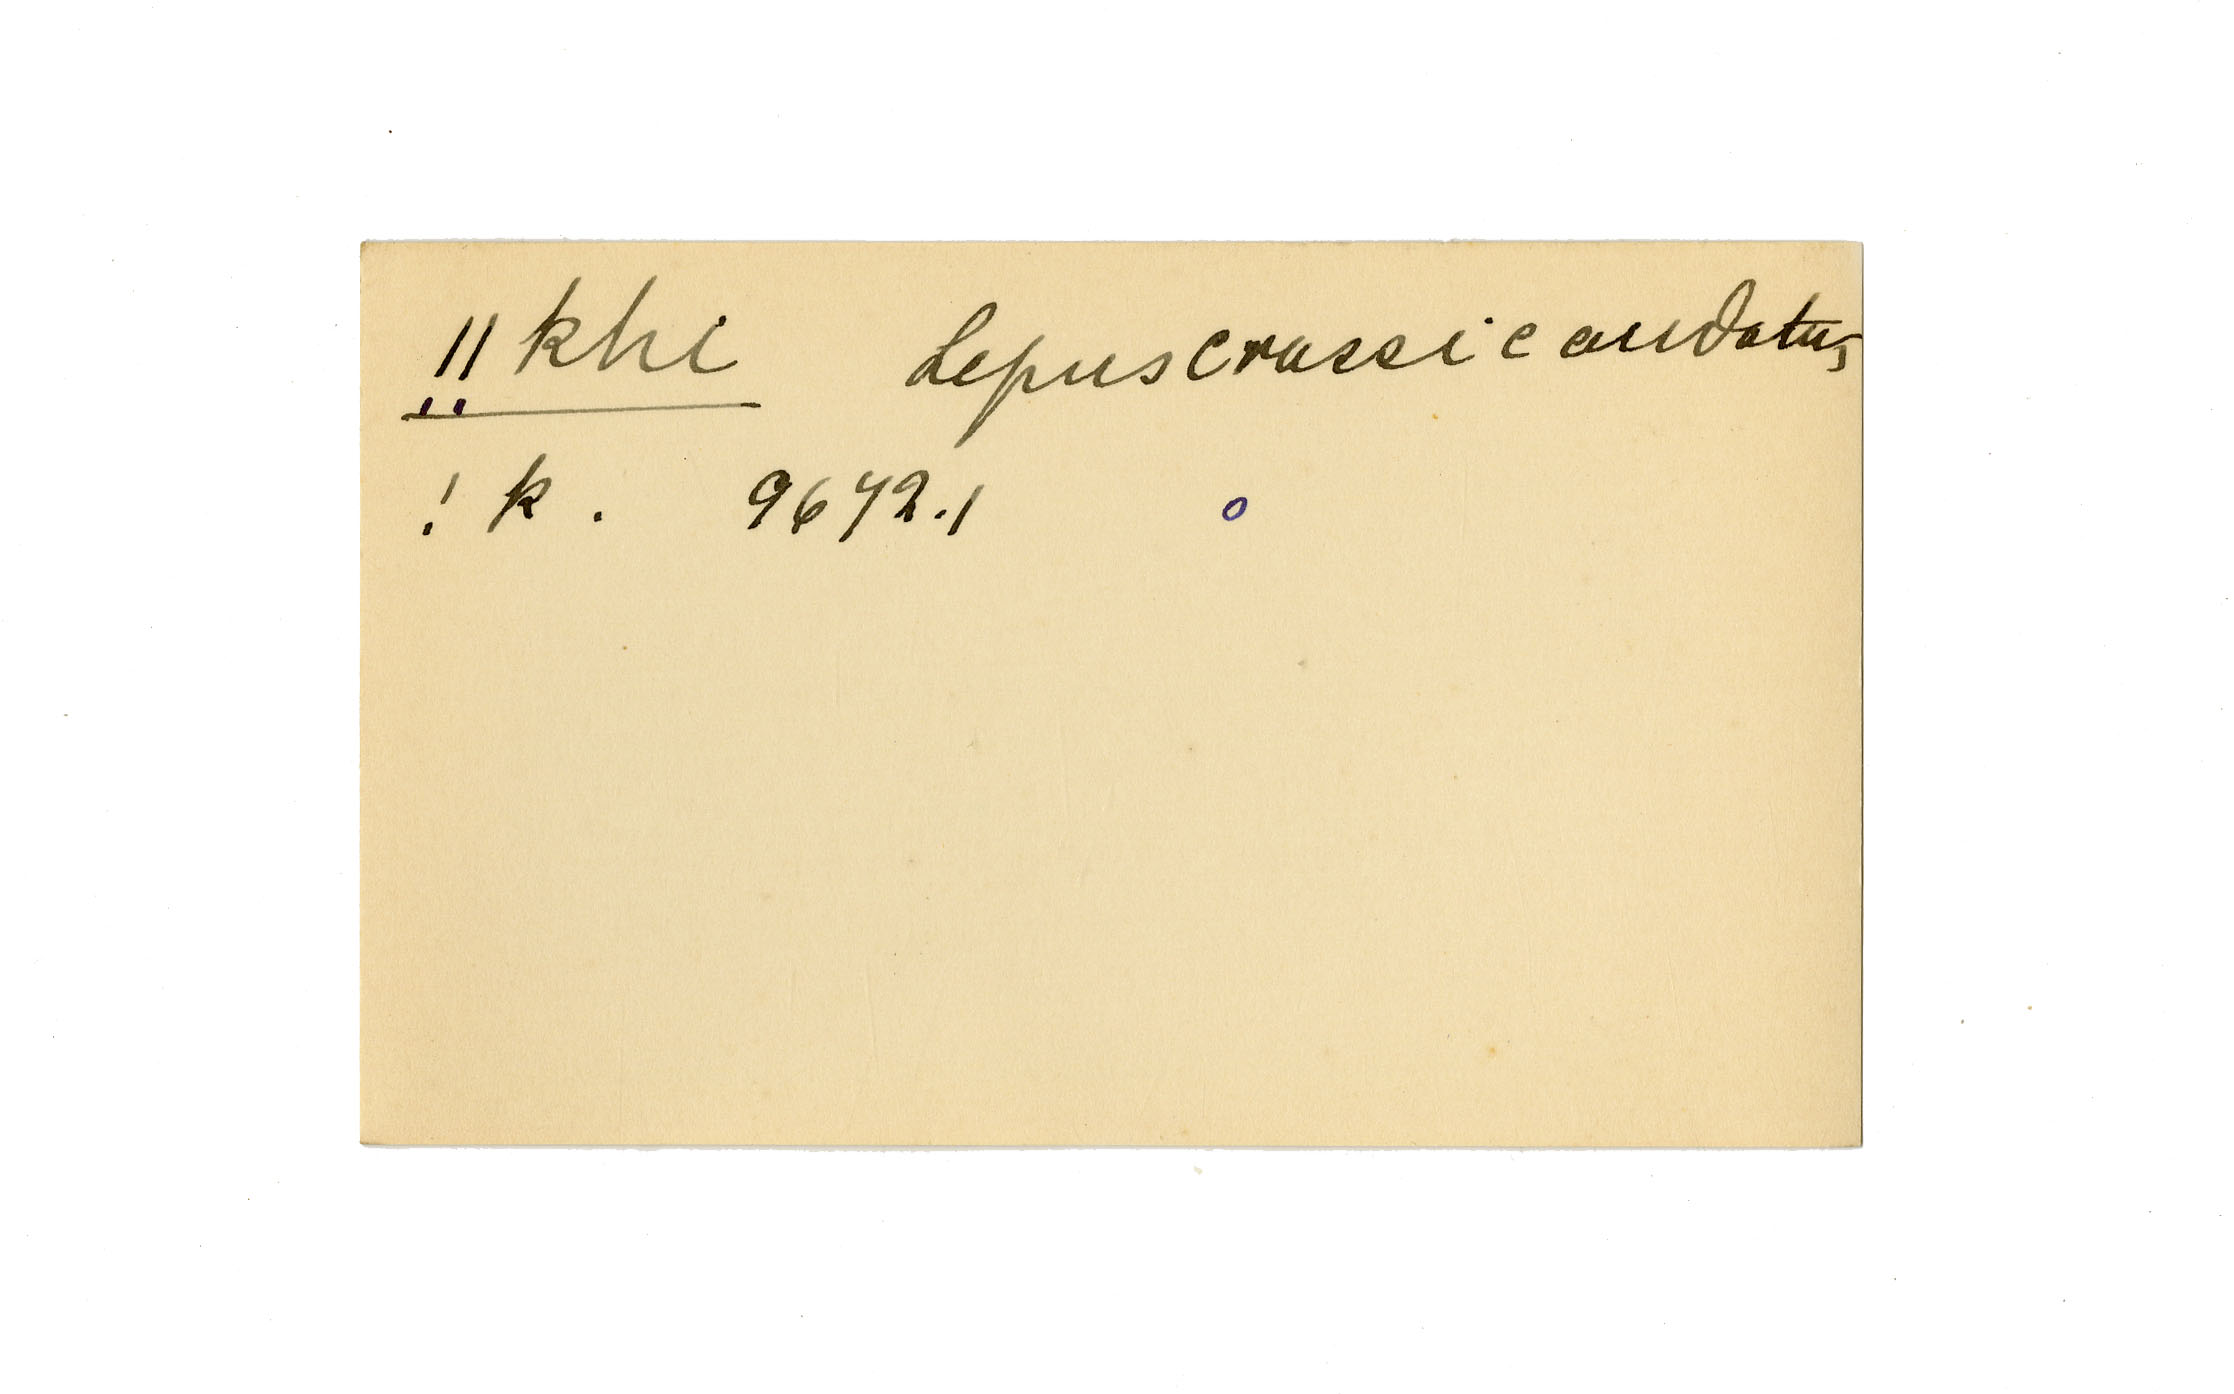 !!khi Lepus crassicaudatus
!k. 9672.1 o